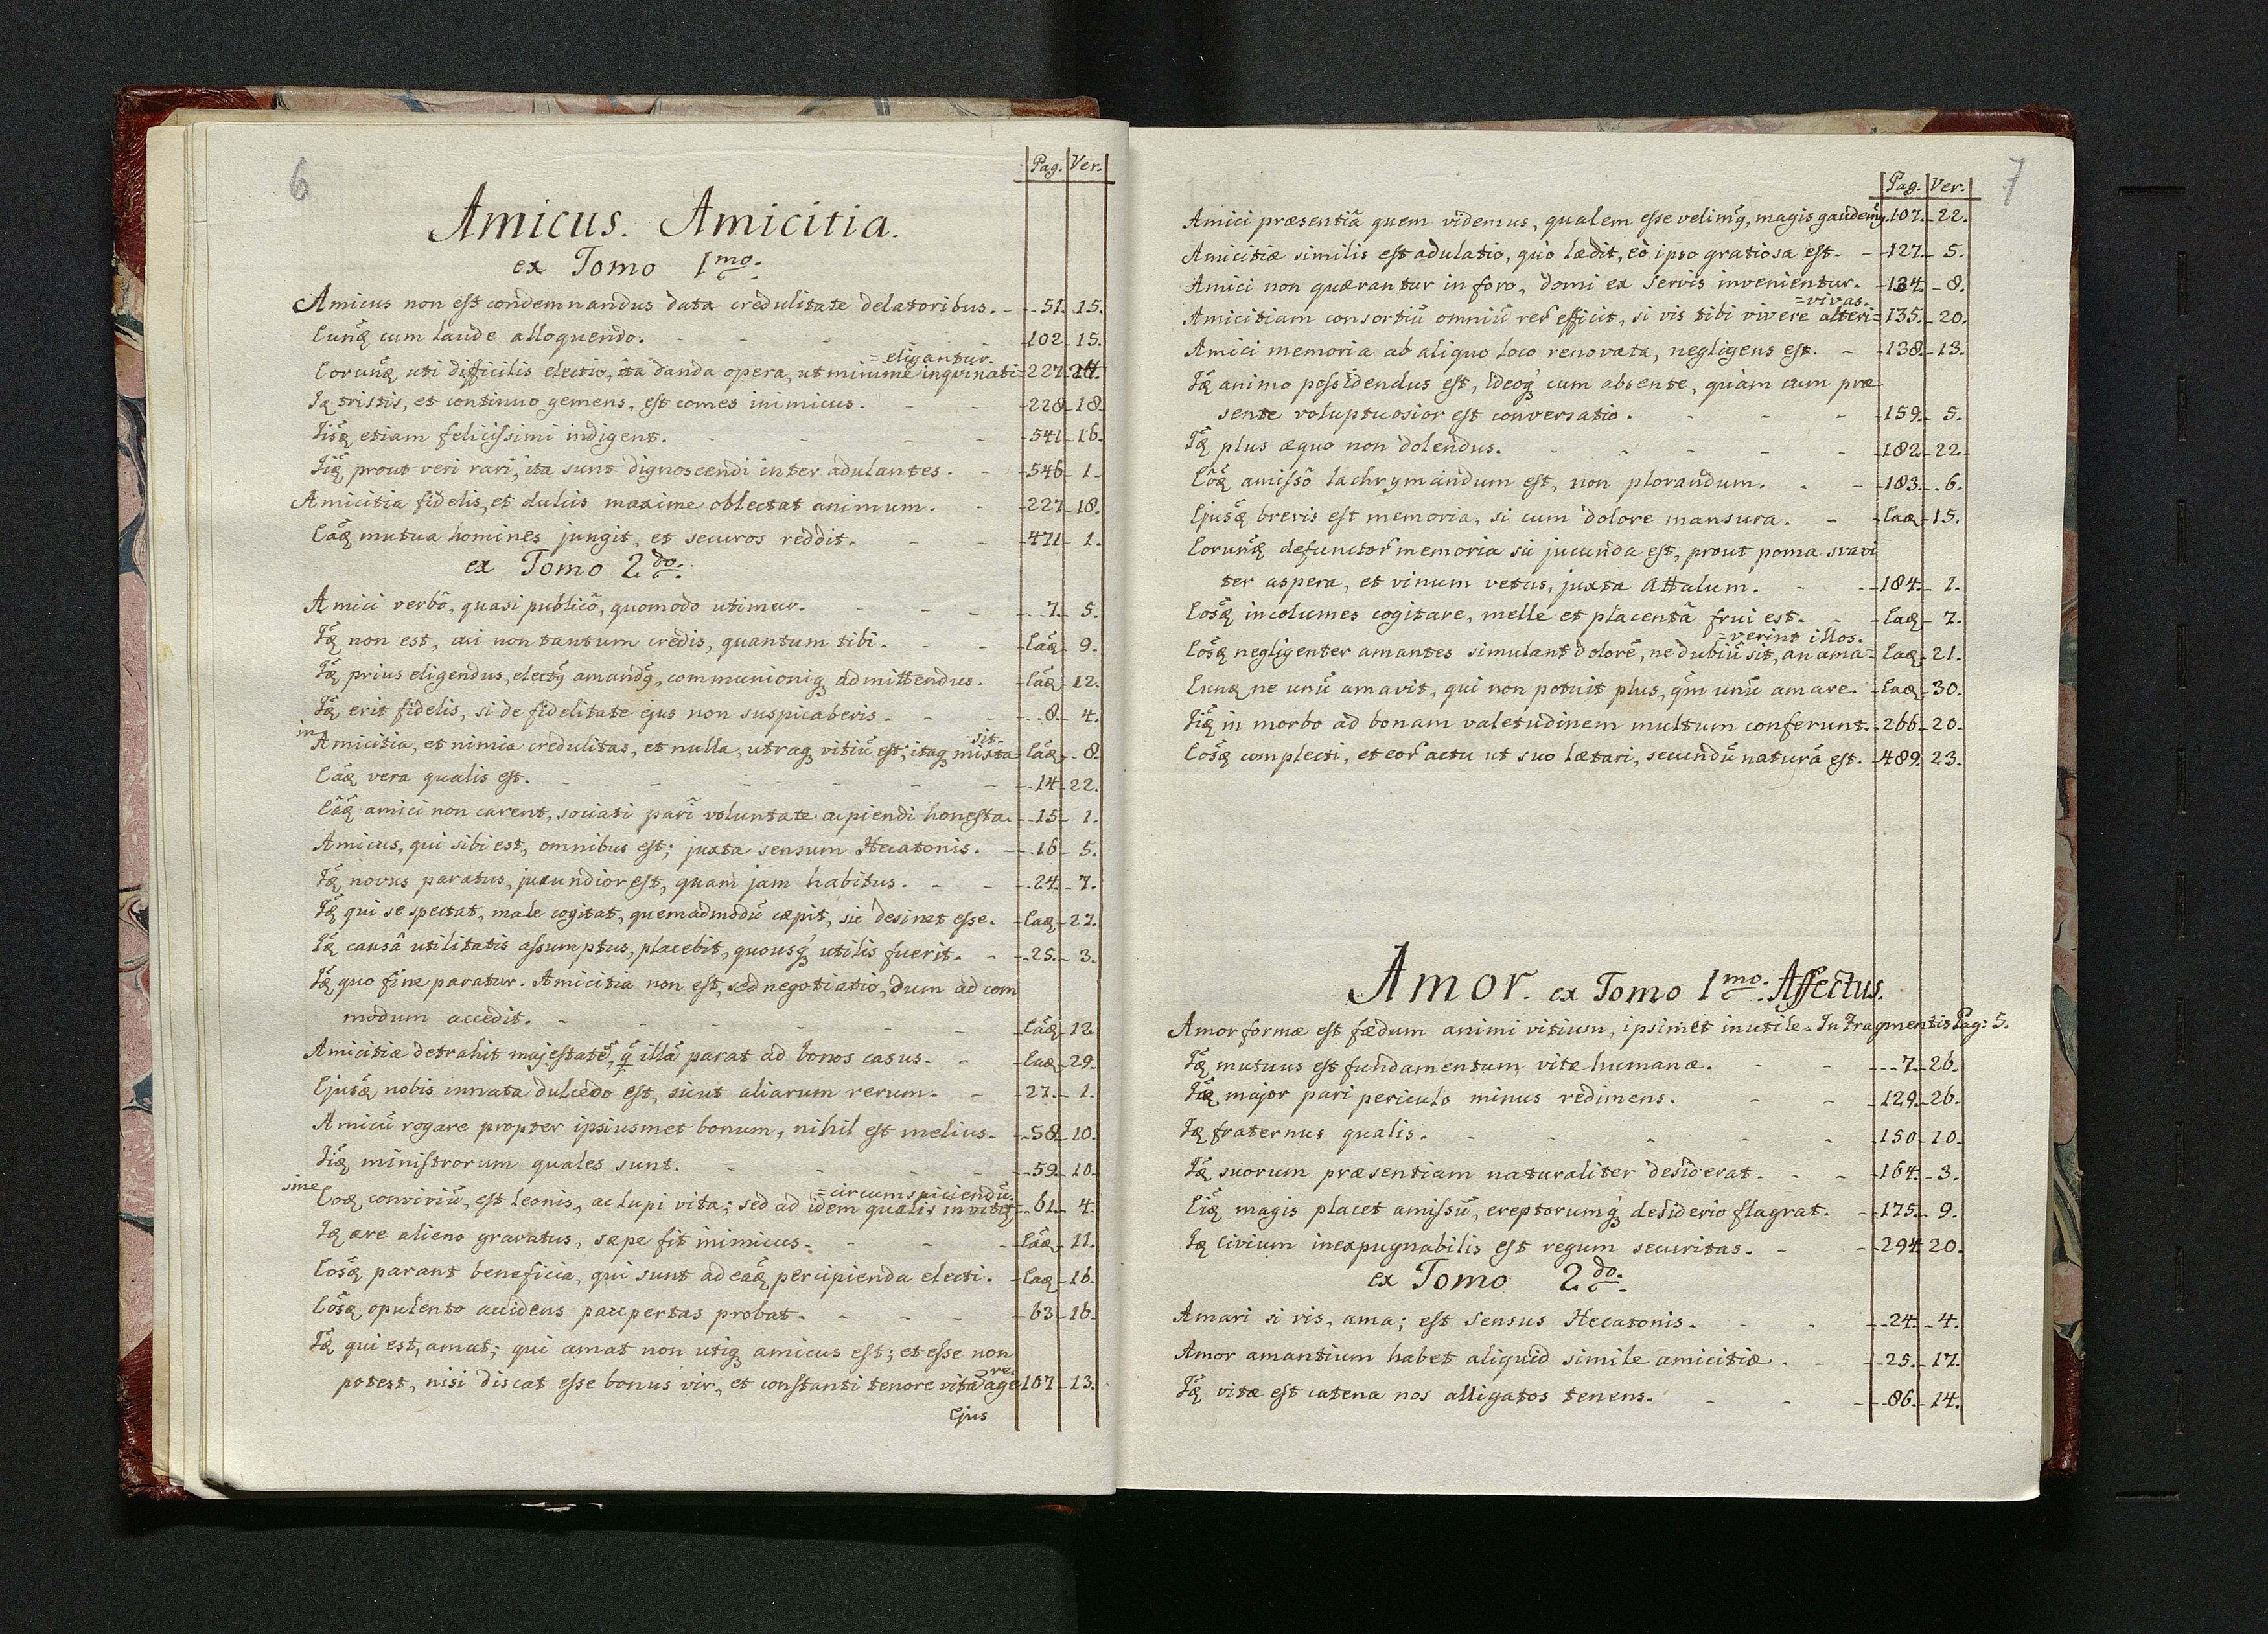 6
Pag. Ver.
Amicus. Amicitia.
ex Tomo 1mo.
Amicus non est condemnandus data credulitate delatoribus. - 51. 15.
Eunq cum laude alloquendo. - 102. 15.
=eligantur.
Eorunq uti difficilis electio, ita danda opera, ut minime inqvinati= 227.
Iq tristis, et continuo gemens, est comes inimicus. - 228. 18.
Iisq etiam felicissimi indigent. - 541. 16.
Iiq prout veri rari, ita sunt dignoscendi inter adulantes. - 546. 1.
Amicitia fidelis, et dulcis maxime oblectat animum. - 227. 18.
Eaq mutua homines jungit, et securos reddit. - 471. 1.
ex Tomo 2do.
Amici verbo, quasi publico, quomodo utimur. - 7. 5.
Iq non est, cui non tantum credis, quantum tibi. - Eaq. 9.
Iq prius eligendus, electq amandq, communioniq admittendus. - Eaq. 12.
Iq erit fidelis, si de fidelitate ejus non suspicaberis. - 8. 4.
in sit.
Amicitia, et nimia credulitas, et nulla, utraq vitiū est, itaq mixta Eaq. 8.
Eaq vera qualis est. - 14. 22.
Eaq amici non carent, sociati pari voluntate cupiendi honesta. - 15. 1.
Amicus, qui sibi est, omnibus est; juxta sensum Hecatonis. - 16. 5.
Iq novus paratus, jucundior est, quam jam habitus. - 24. 7.
Iq qui se spectat, male cogitat, quemadmodū cæpit, sic desinet esse. - Eaq. 27.
Iq causâ utilitatis assumptus, placebit, quousq utilis fuerit. - 25. 3.
Iq quo fine paratur. Amicitia non est, sed negotiatio, dum ad com
modum accedit. - Eaq. 12.
Amicitiæ detrahit majestatē, q illā parat ad bonos casus. - Eaq. 29.
Ejusq nobis innata dulcedo est, sicut aliarum rerum. - 27. 1.
Amicū rogare propter ipsiusmet bonum, nihil est melius. - 58. 10.
Iiq ministrorum quales sunt. - 59. 10.
sine =circumspiciendū.
Eoq conviviū, est leonis, ac lupi vita; sed ad idem qualis invitq= 61. 4.
Iq ære alieno gravatus, sæpe fit inimicus. - Eaq. 11.
Eosq parant beneficia, qui sunt ad eaq percipienda electi. - Eaq. 16.
Eosq opulento accidens paupertas probat. - 63. 16.
Iq qui est, amat; qui amat non utiq amicus est; et esse non
re.
potest, nisi discat esse bonus vir, et constanti tenore vitā age 107. 13.
Ejus
7
Pag. Ver.
Amici præsentiā quem videmus, qualem esse velimq, magis gaudemq. 107. 22.
Amicitiæ similis est adulatio, quò lædit, eò ipso gratiosa est. - 127. 5.
Amici non quærantur in foro, domi ex servis invenientur. - 134. 8.
=vivas.
Amicitiam consortiū omniū rer efficit, si vis tibi vivere alteri= 135. 20.
Amici memoria ab aliquo loco renovata, negligens est. - 138. 13.
Iq animo possidendus est, ideoq cum absente, quàm cum præ
sente voluptuosior est conversatio. - 159. 5.
Iq plus æquo non dolendus. - 182. 22.
Eôq amissô lachrymandum est, non plorandum. - 183. 6.
Ejusq brevis est memoria, si cum dolore mansura. - Eaq. 15.
Eorunq defunctor memoria sic jucunda est, prout poma svavi
ter aspera, et vinum vetus, juxta Attalum. - 184. 1.
Eosq incolumes cogitare, melle et placentâ frui est. - Eaq. 7.
=verint illos.
Eosq negligenter amantes simulant dolorē, ne dubiū sit, an ama= Eaq. 21.
Eunq ne unū amavit, qui non potuit plus, qm unū amare. - Eaq. 30.
Iiq in morbo ad bonam valetudinem multum conferunt. - 266. 20.
Eosq complecti, et eor actu ut suo lætari, secundū naturā est. - 489. 23.
Amor. ex Tomo 1mo. Affectus.
Amor formæ est fædum animi vitium, ipsimet inutile. In Fragmentis Pag: 5.
Iq mutuus est fundamentum vitæ humanæ. - 7. 26.
Iq major pari periculo minus redimens. - 129. 26.
Iq fraternus qualis. - 150. 10.
Iq suorum præsentiam naturaliter desiderat. - 164. 3.
Eiq magis placet amissū, ereptorumq desiderio flagrat. - 175. 9.
Iq civium inexpugnabilis est regum securitas. - 294. 20.
ex Tomo 2do.
Amari si vis, ama; est sensus Hecatonis. - 24. 4.
Amor amantium habet aliquid simile amicitiæ. - 25. 17.
Iq vitæ est catena nos alligatos tenens. - 86. 14.